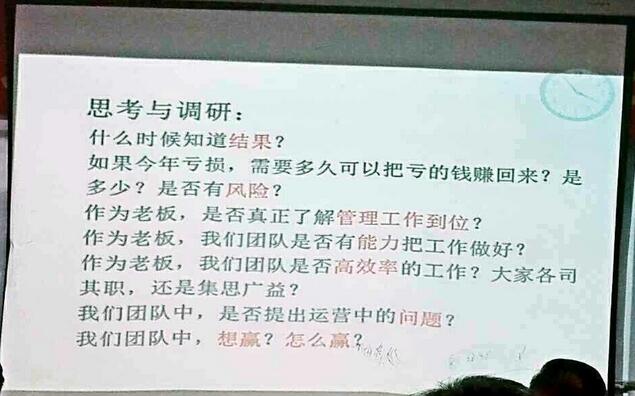 思考与调研：
什么时候知道结果？
如果今年亏损，需要多久可以把亏的钱赚回来？是
多少？是否有风险？
作为老板，是否真正了解管理工作到位？
作为老板，我们团队是否有能力把工作做好？
作为老板，我们团队是否高效率的工作？大家各司
其职，还是集思广益？
我们团队中，是否提出运营中的问题？
我们团队中，想赢？怎么赢？